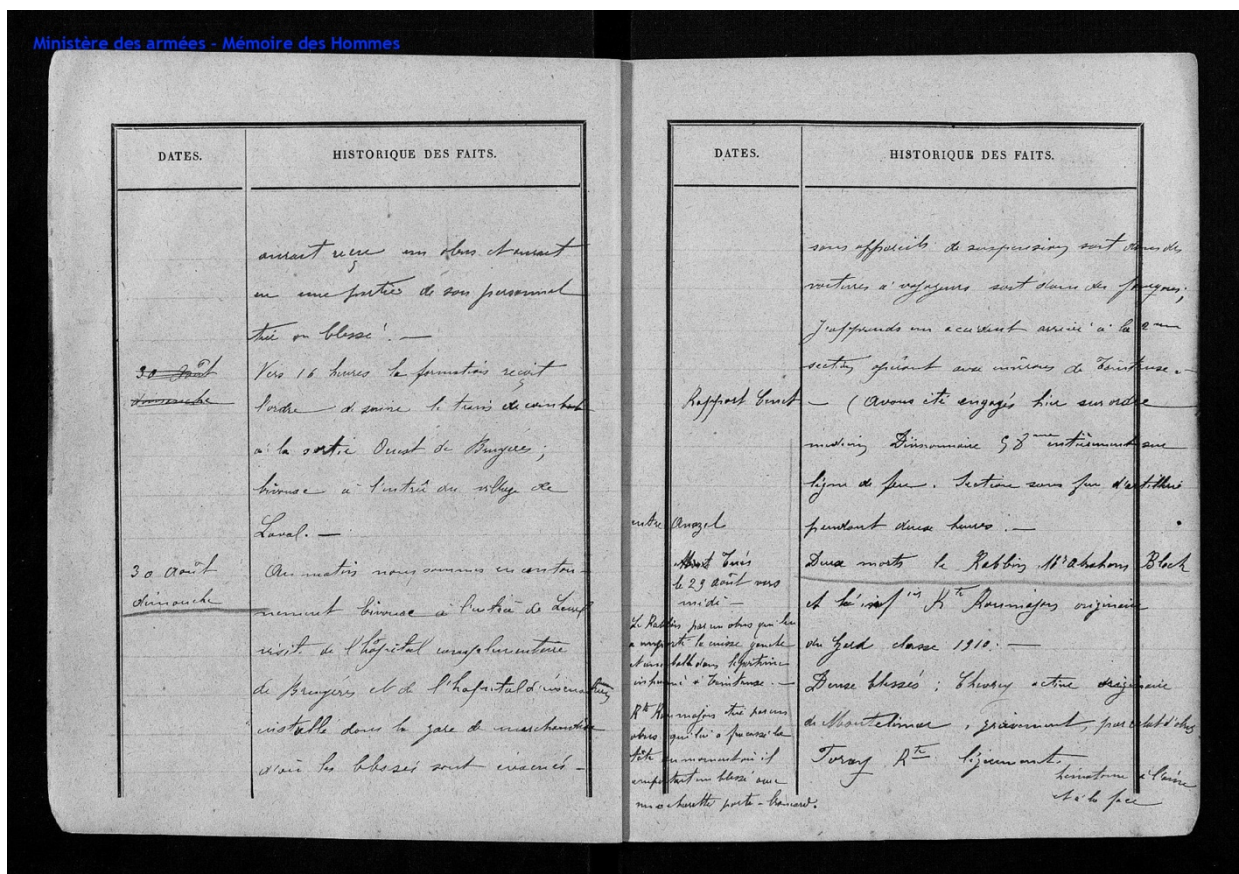 Ministère des armées - Mémoire des Hommes
DATES.
HISTORIQUE DES FAITS.
aurait reçu un obus et aurait
eu une partie de son personnel
tué ou blessé. —
30 Août
dimanche
Vers 16 heures la formation reçoit
l'ordre de suivre le train de combat
à la sortie Ouest de Bruyères ;
bivouac à l'entrée du village de
Laval. —
30 Août
dimanche
Au matin nous sommes en canton-
nement bivouac à l'entrée de Laval
visite de l'hôpital complémentaire
de Bruyères et de l'hôpital d'évacuation
installé dans la gare de marchandise
d'où les blessés sont évacués —
DATES.
HISTORIQUE DES FAITS.
sans appareils de suspension soit dans des
voitures à voyageurs soit dans des fourgons ;
J'apprends un accident arrivé à la 2eme
section opérant aux environs de Taintrux. —
Rapport
— (Avons été engagés hier sur ordre
médecin Divisionnaire 58eme entièrement sur
ligne de feu. Section sous feu d'artillerie
pendant deux heures. —
entre Anozel
Tués
le 29 Août vers
midi —
Le Rabbin par un obus qui lui
a emporté la cuisse gauche
et une balle dans la poitrine
inhumé à Taintrux. —
Rte Roumajon tué par un
obus qui lui a fracassé la
tête au moment où il
emportait un blessé avec
une charette porte-brancard.
Deux morts le Rabbin Mr Abraham Bloch
et le infier Rte Roumajon originaire
du Gard classe 1910. —
Deux blessés : active originaire
de Montelimar, grièvement, par éclat d'obus
Rte légèrement.
hématome à l'aine
et à la face